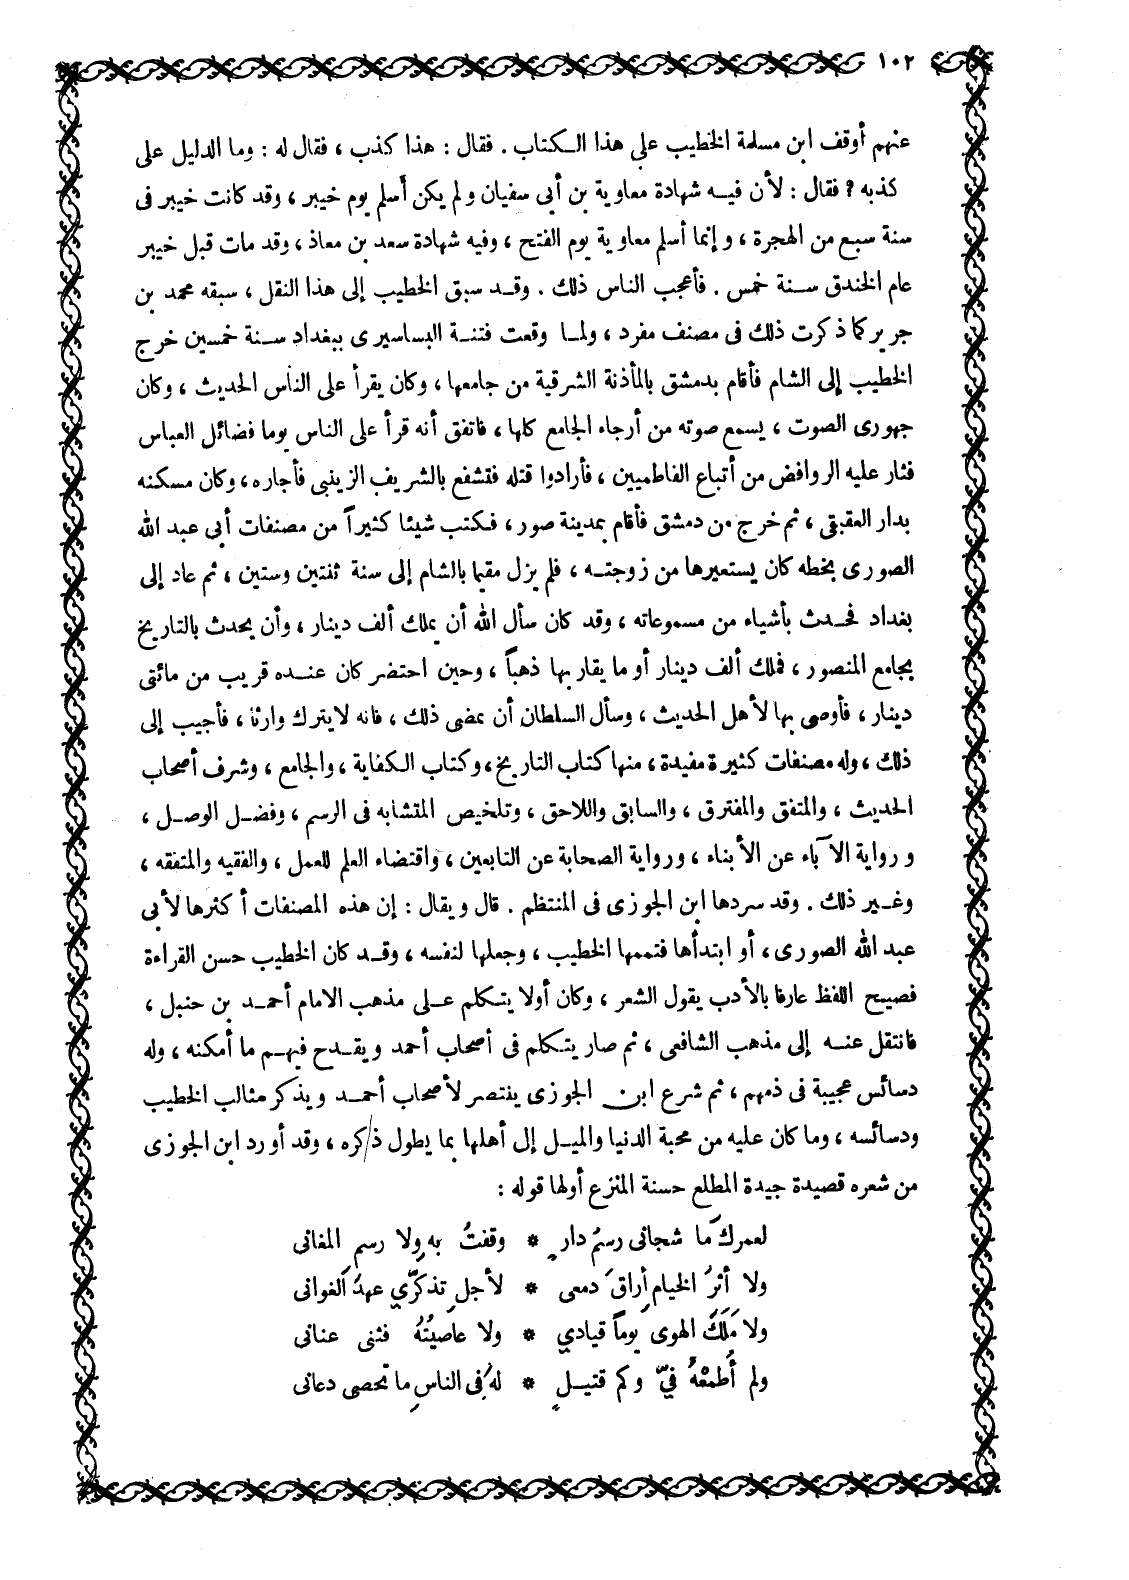 ١٠٢
عنهم أوقف ابن مسلمة الخطيب على هذا الكتاب . فقال : هذا كذب ، فقال له : وما الدليل على
كذبه ؟ فقال : لأن فيه شهادة معاوية بن أبي سفيان ولم يكن أسلم يوم خيبر ، وقد كانت خيبر فى
سنة سبع من الهجرة ، وإنما أسلم معاوية يوم الفتح ، وفيه شهادة سعد بن معاذ ، وقد مات قبل خيبر
عام الخندق سنة خمس . فأعجب الناس ذلك . وقد سبق الخطيب إلى هذا النقل ، سبقه محمد بن
جرير كما ذكرت ذلك فى مصنف مفرد ، ولما وقعت فتنة البساسيرى ببغداد سنة خمسين خرج
الخطيب إلى الشام فأقام بدمشق بالمأذنة الشرقية من جامعها ، وكان يقرأ على الناس الحديث ، وكان
جهورى الصوت ، يسمع صوته من أرجاء الجامع كلها ، فاتفق أنه قرأ على الناس يوما فضائل العباس
فثار عليه الروافض من أتباع الفاطميين ، فأرادوا قتله فتشفع بالشريف الزينبى فأجاره ، وكان مسكنه
بدار العقيقى ، ثم خرج من دمشق فأقام بمدينة صور ، فكتب شيئا كثيراً من مصنفات أبى عبد الله
الصورى بخطه كان يستعيرها من زوجته ، فلم يزل مقيما بالشام إلى سنة ثنتين وستين ، ثم عاد إلى
بغداد فحدث بأشياء من مسموعاته ، وقد كان سأل الله أن يملك ألف دينار ، وأن يحدث بالتاريخ
بجامع المنصور ، فملك ألف دينار أو ما يقاربها ذهباً ، وحين احتضر كان عنده قريب من مائتى
دينار ، فأوصى بها لأهل الحديث ، وسأل السلطان أن يمضى ذلك ، فانه لا يترك وارثا ، فأجيب إلى
ذلك ، وله مصنفات كثيرة مفيدة ، منها كتاب التاريخ ، وكتاب الكفاية ، والجامع ، وشرف أصحاب
الحديث ، والمتفق والمفترق ، والسابق واللاحق ، وتلخيص المتشابه فى الرسم ، وفضل الوصل ،
ورواية الآباء عن الأبناء ، ورواية الصحابة عن التابعين ، واقتضاء العلم للعمل ، والفقيه والمتفقه ،
وغير ذلك . وقد سردها ابن الجوزى فى المنتظم . قال ويقال : إن هذه المصنفات أكثرها لأبى
عبد الله الصورى ، أو ابتدأها فتممها الخطيب ، وجعلها لنفسه ، وقد كان الخطيب حسن القراءة
فصيح اللفظ عارفا بالأدب يقول الشعر ، وكان أولا يتكلم على مذهب الامام أحمد بن حنبل ،
فانتقل عنه إلى مذهب الشافعى ، ثم صار يتكلم فى أصحاب أحمد ويقدح فيهم ما أمكنه ، وله
دسائس عجيبة فى ذمهم ، ثم شرع ابن الجوزى ينتصر لأصحاب أحمد ويذكر مثالب الخطيب
ودسائسه ، وما كان عليه من محبة الدنيا والميل إلى أهلها بما يطول ذكره ، وقد أورد ابن الجوزى
من شعره قصيدة جيدة المطلع حسنة المنزع أولها قوله :
لعمرك ما شجانى رسمُ دارٍ * وقفتُ به ولا رسم المغانى
ولا أثرُ الخيام أراقَ دمعى * لأجلِ تذكرّي عهدُ الغوانى
ولا مَلَكَ الهوى يوماً قيادي * ولا عاصيتُهُ فثنى عنانى
ولم أُطمعْهُ فيّ وكم قتيلٍ * لهُ فى الناسِ ما تحصى دعانى